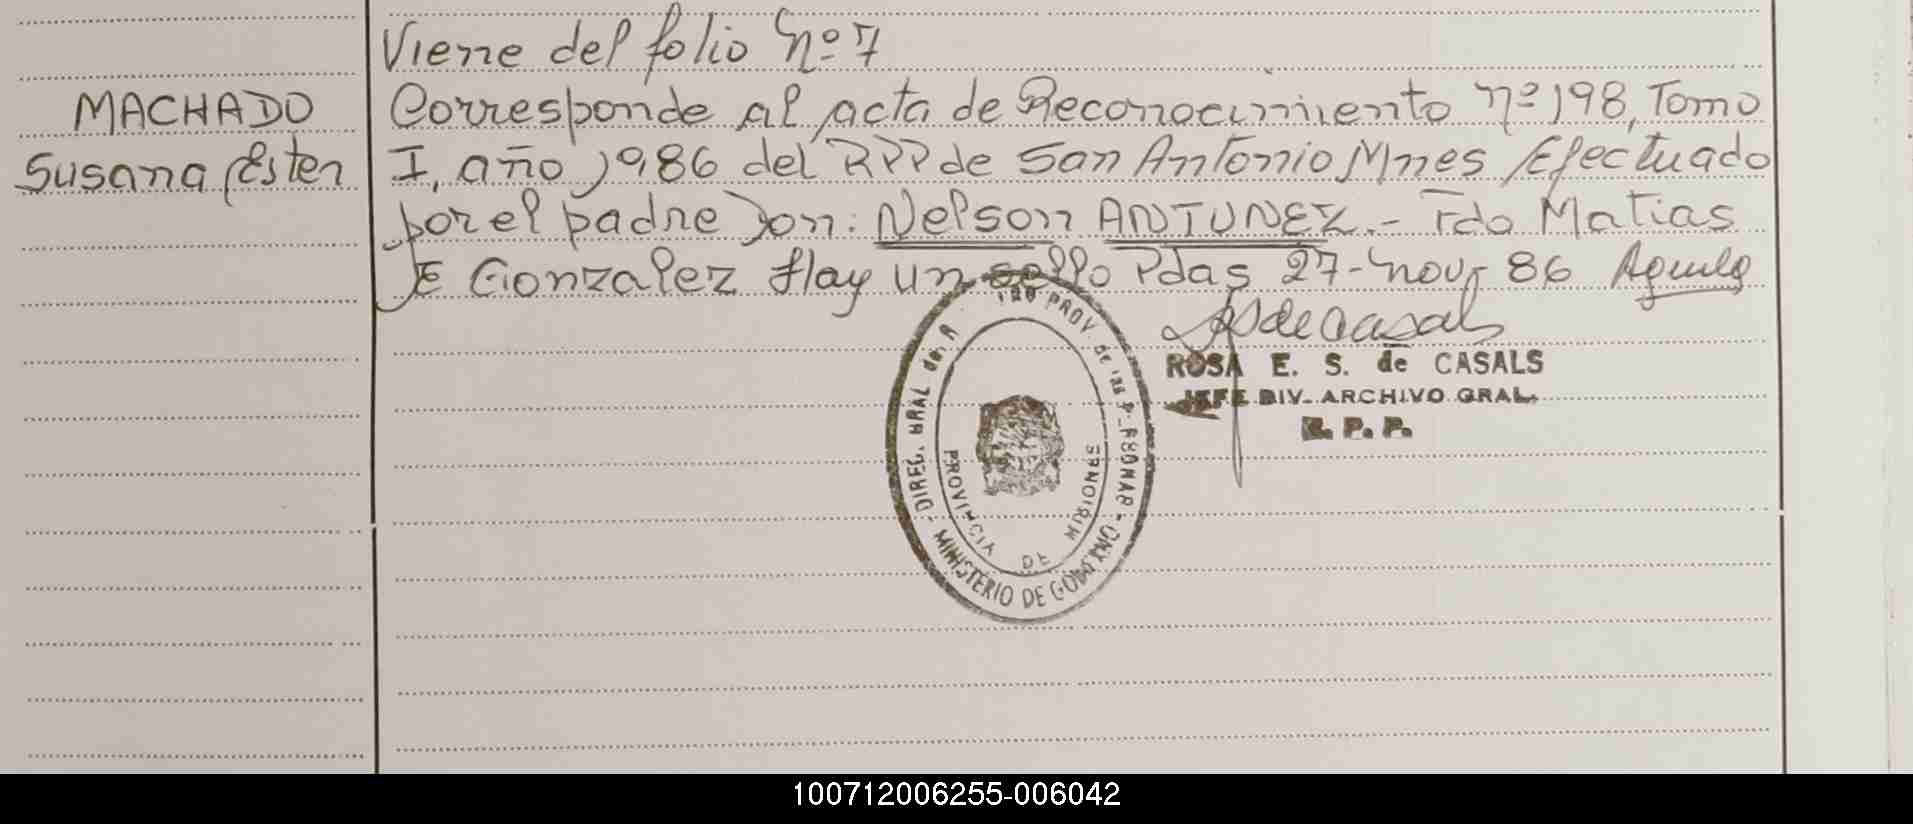 Viene del folio nº 7
MACHADO
Susana Ester
Corresponde al acta de Reconocimiento nº 198, Tomo
I, año 1986 del RPP de San Antonio Mnes Efectuado
por el padre Don: Nelson ANTUNEZ.- Fdo Matias
E Gonzalez Hay un sello Pdas 27-nov-86
deCasals
ROSA E. S. de CASALS
JEFE DIV. ARCHIVO GRAL.
R. P. P.
DIREC. GRAL del R
PROV. de las P
MINISTERIO DE GOBIERNO
PROVINCIA DE MISIONES
100712006255-006042